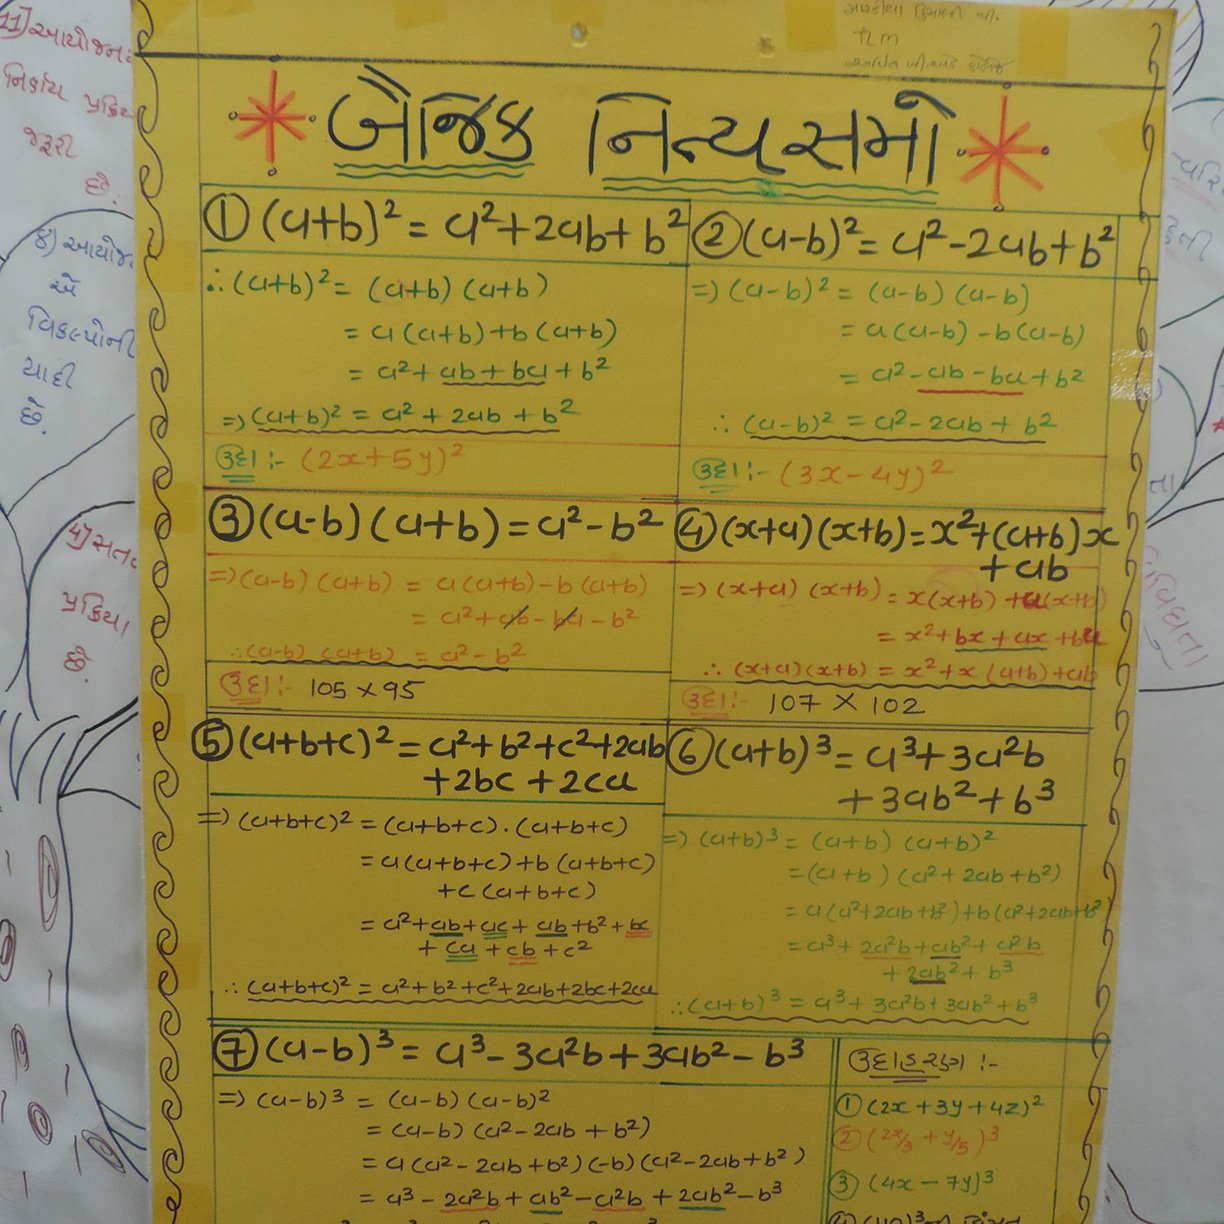 TLM
બૈજિક નિત્યસમો
① (a+b)² = a²+2ab+b²
∴ (a+b)² = (a+b) (a+b)
= a (a+b) + b (a+b)
= a² + ab + ba + b²
⇒ (a+b)² = a² + 2ab + b²
ઉદા :- (2x+5y)²
② (a-b)² = a² - 2ab + b²
⇒ (a-b)² = (a-b) (a-b)
= a (a-b) - b (a-b)
= a² - ab - ba + b²
∴ (a-b)² = a² - 2ab + b²
ઉદા :- (3x - 4y)²
③ (a-b) (a+b) = a² - b²
⇒ (a-b) (a+b) = a (a+b) - b (a+b)
= a² + ab - ba - b²
∴ (a-b) (a+b) = a² - b²
ઉદા :- 105 × 95
④ (x+a) (x+b) = x² + (a+b) x
+ ab
⇒ (x+a) (x+b) = x(x+b) + a(x+b)
= x² + bx + ax + ba
∴ (x+a) (x+b) = x² + x (a+b) + ab
ઉદા :- 107 × 102
⑤ (a+b+c)² = a² + b² + c² + 2ab
+ 2bc + 2ca
⇒ (a+b+c)² = (a+b+c) . (a+b+c)
= a (a+b+c) + b (a+b+c)
+ c (a+b+c)
= a² + ab + ac + ab + b² + bc
+ ca + cb + c²
∴ (a+b+c)² = a² + b² + c² + 2ab + 2bc + 2ca
⑥ (a+b)³ = a³ + 3a²b
+ 3ab² + b³
⇒ (a+b)³ = (a+b) (a+b)²
= (a+b) (a² + 2ab + b²)
= a (a² + 2ab + b²) + b (a² + 2ab + b²)
= a³ + 2a²b + ab² + a²b
+ 2ab² + b³
∴ (a+b)³ = a³ + 3a²b + 3ab² + b³
⑦ (a-b)³ = a³ - 3a²b + 3ab² - b³
⇒ (a-b)³ = (a-b) (a-b)²
= (a-b) (a² - 2ab + b²)
= a (a² - 2ab + b²) (-b) (a² - 2ab + b²)
= a³ - 2a²b + ab² - a²b + 2ab² - b³
ઉદાહરણ :-
① (2x + 3y + 4z)²
② (2x/3 + y/5)³
③ (4x - 7y)³
નિર્ણય પ્રક્રિયા
જરૂરી
છે.
એ
વિકલ્પોની
યાદી
છે.
પ્રક્રિયા
છે.